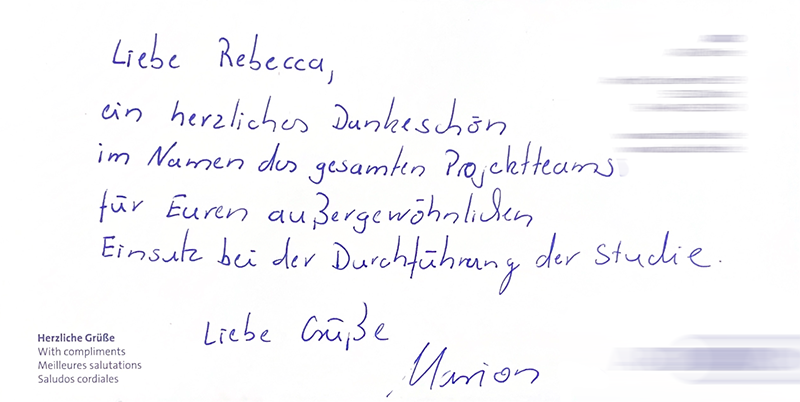 Liebe Rebecca,
ein herzliches Dankeschön
im Namen des gesamten Projektteams
für Euren außergewöhnlichen
Einsatz bei der Durchführung der Studie.
Liebe Grüße
Marion
Herzliche Grüße
With compliments
Meilleures salutations
Saludos cordiales